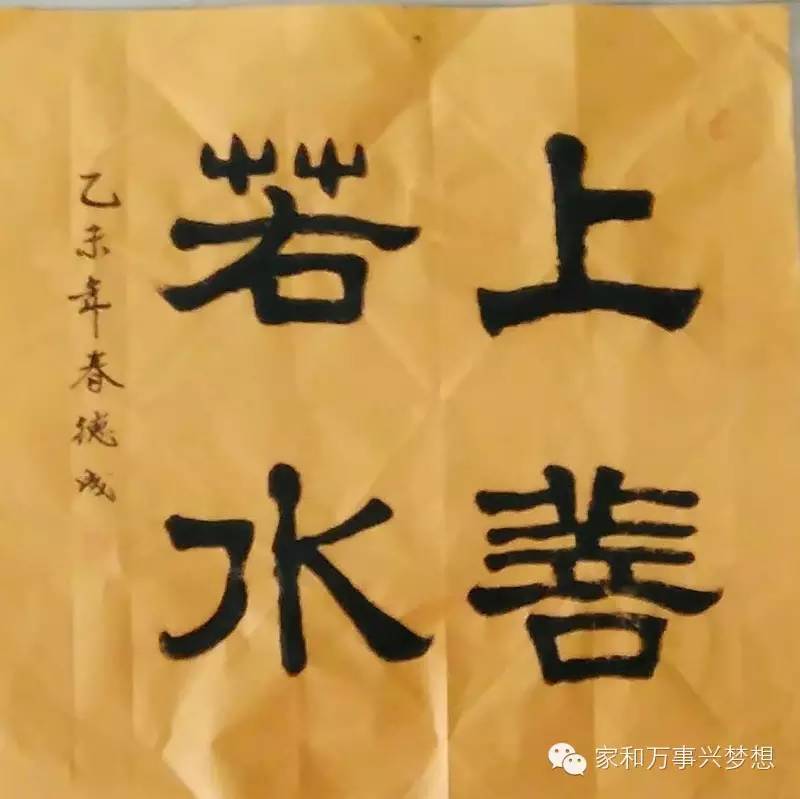 上善
若水
乙未年春德成
家和万事兴梦想